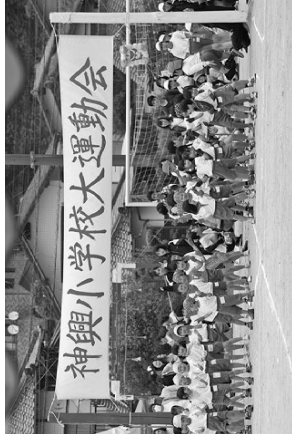 神興小学校大運動会